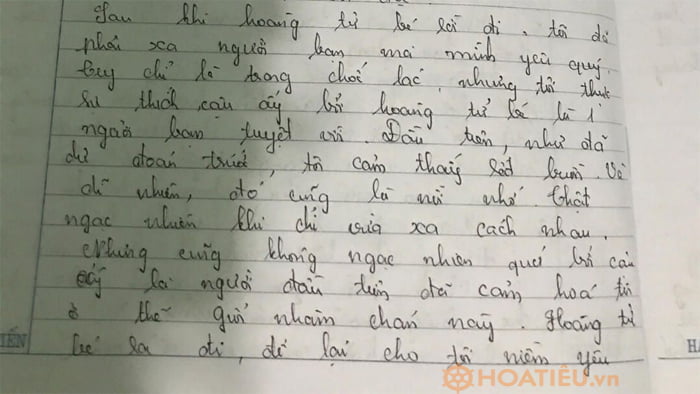 Sau khi hoàng tử bé rời đi, tôi đã
phải xa người bạn mà mình yêu quý.
Tuy chỉ là trong chốc lác, nhưng tôi thực
sự thích cậu ấy bởi hoàng tử bé là 1
người bạn tuyệt vời. Đầu tiên, như đã
dự đoán trước, tôi cảm thấy rất buồn. Và
dĩ nhiên, đó cũng là nỗi nhớ. Thật
ngạc nhiên khi chỉ vừa xa cách nhau.
Nhưng cũng không ngạc nhiên quá bởi cậu
ấy là người đầu tiên đã cảm hoá tôi
ở thế giới nhàm chán này. Hoàng tử
bé ra đi, để lại cho tôi niềm yêu
IẾN
HA
HOATIÊU.vn